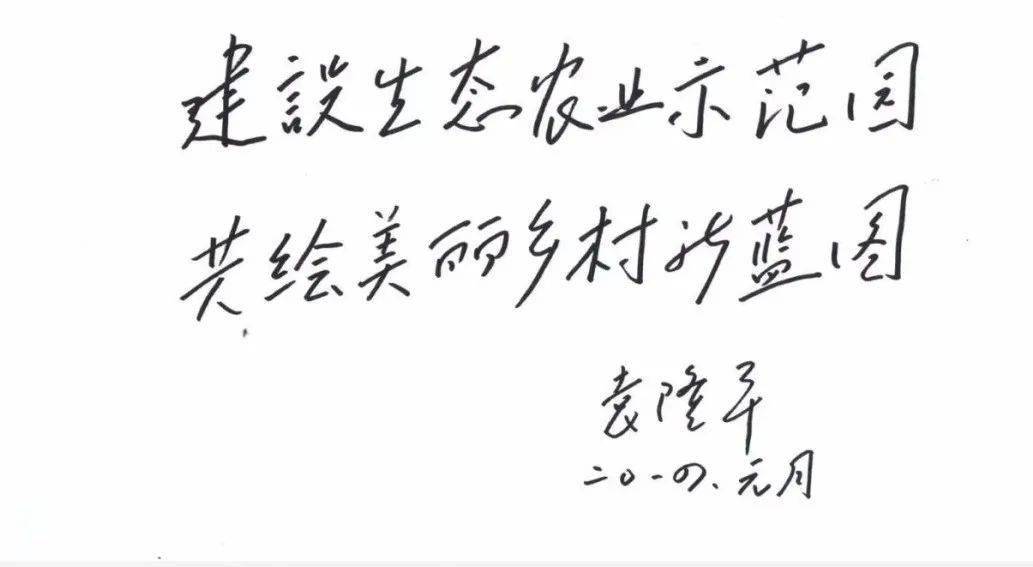 建設生态农业示范园
共绘美丽乡村新蓝图
袁隆平
二〇一四.元月